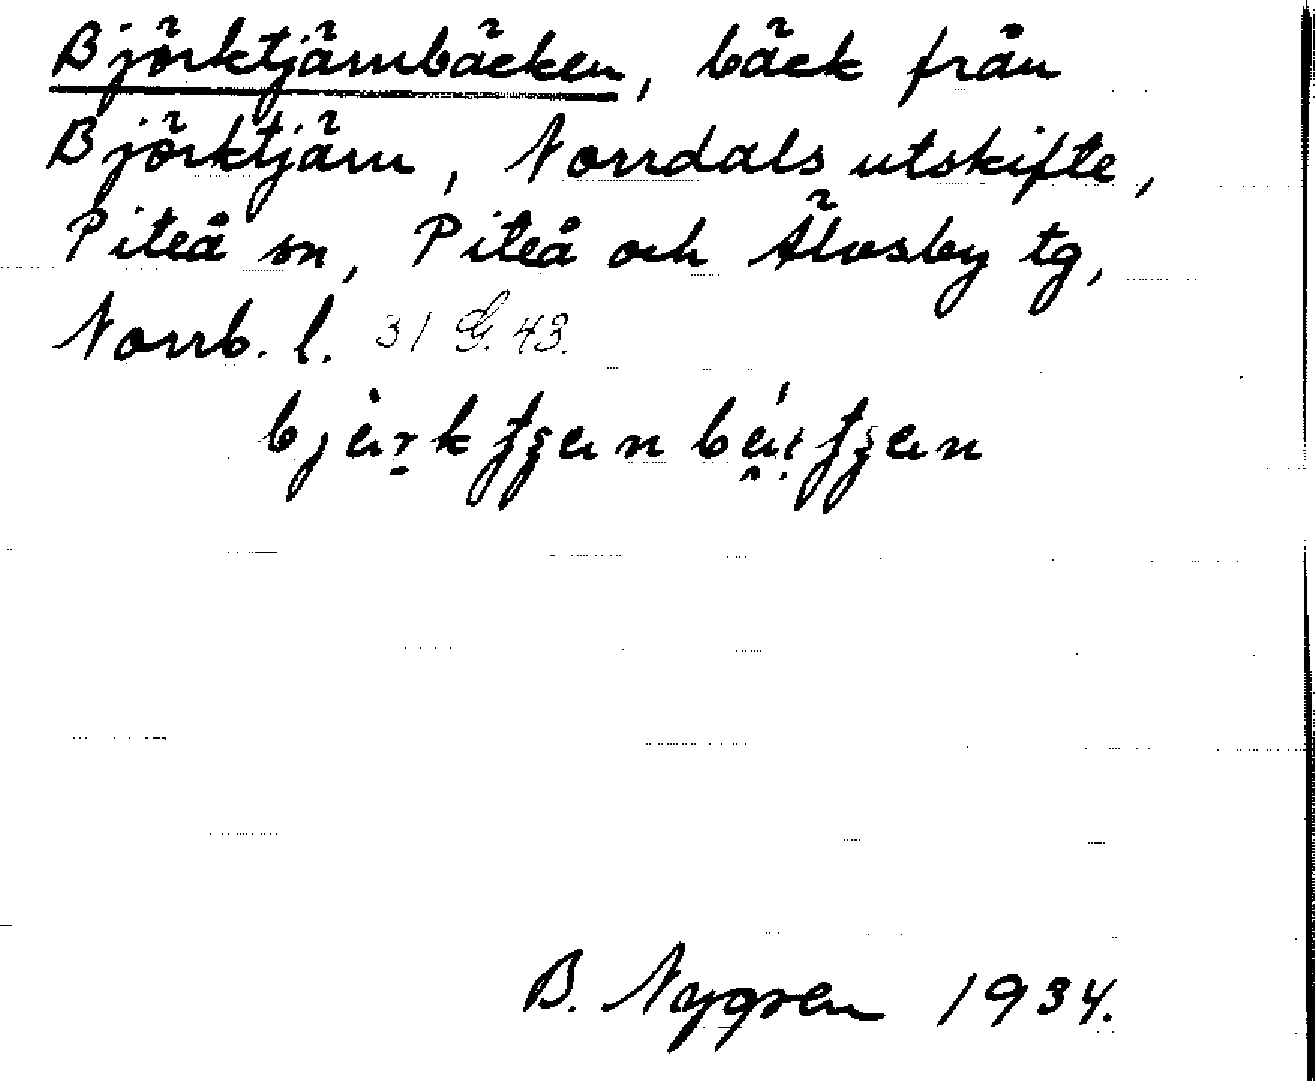 Björktjärnbäcken, bäck från
Björktjärn, Norrdals utskifte,
Piteå sn, Piteå och Älvsby tg,
Norrb. l. 31 G. 43.
B. Nygren 1934.